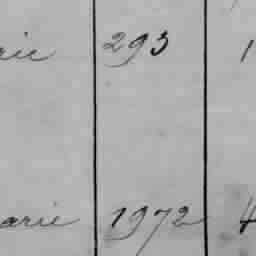 rie 293 1
arie 1972 4